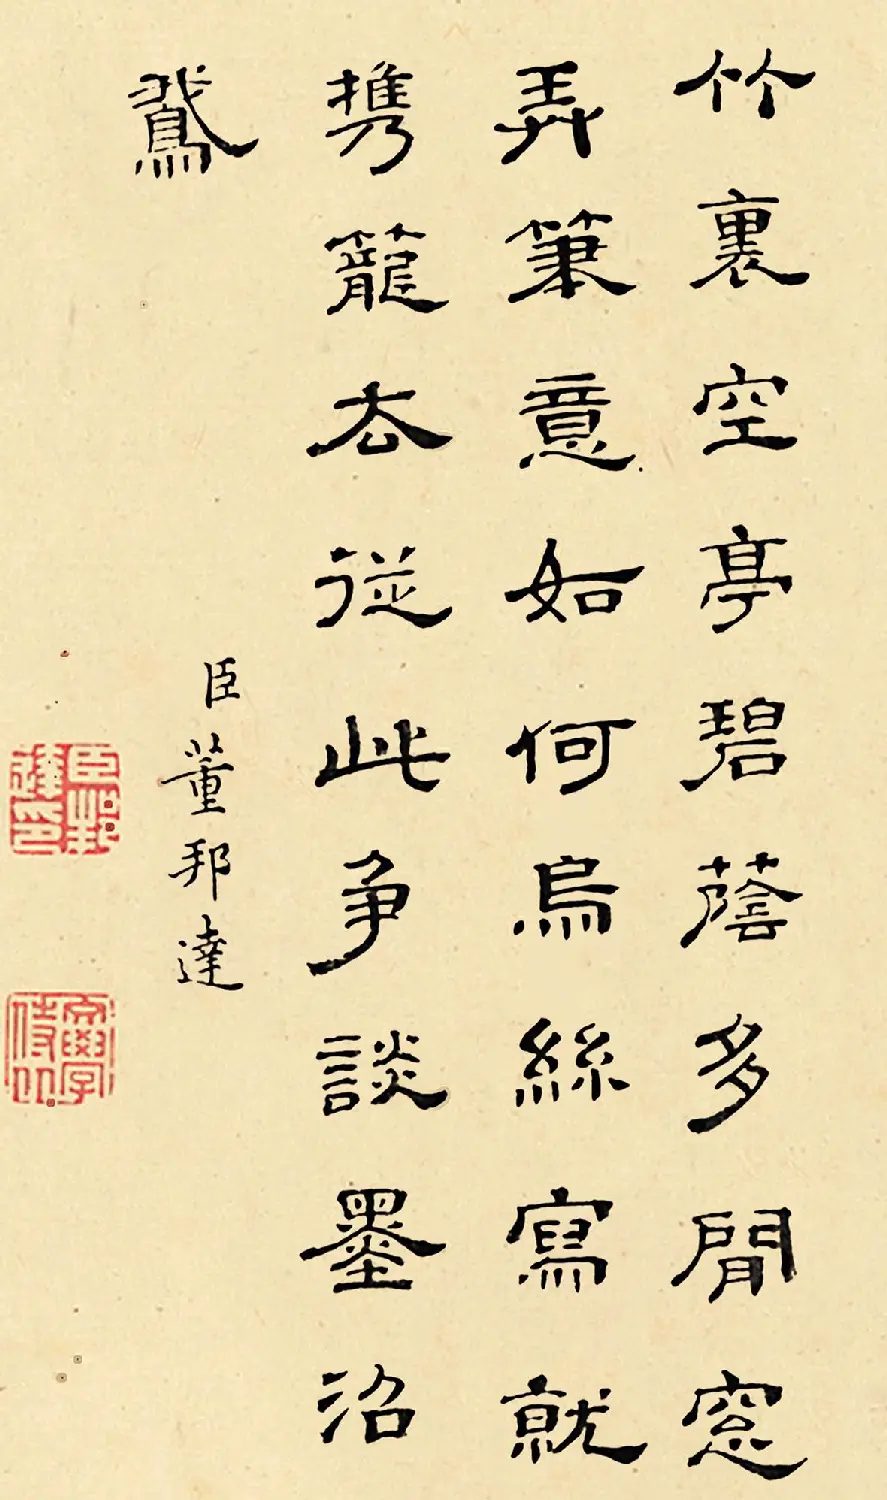 竹裏空亭碧蔭多閒窓
弄筆意如何烏絲寫就
携籠去從此爭談墨沼
鵞
臣董邦達
臣邦達印
文學侍从